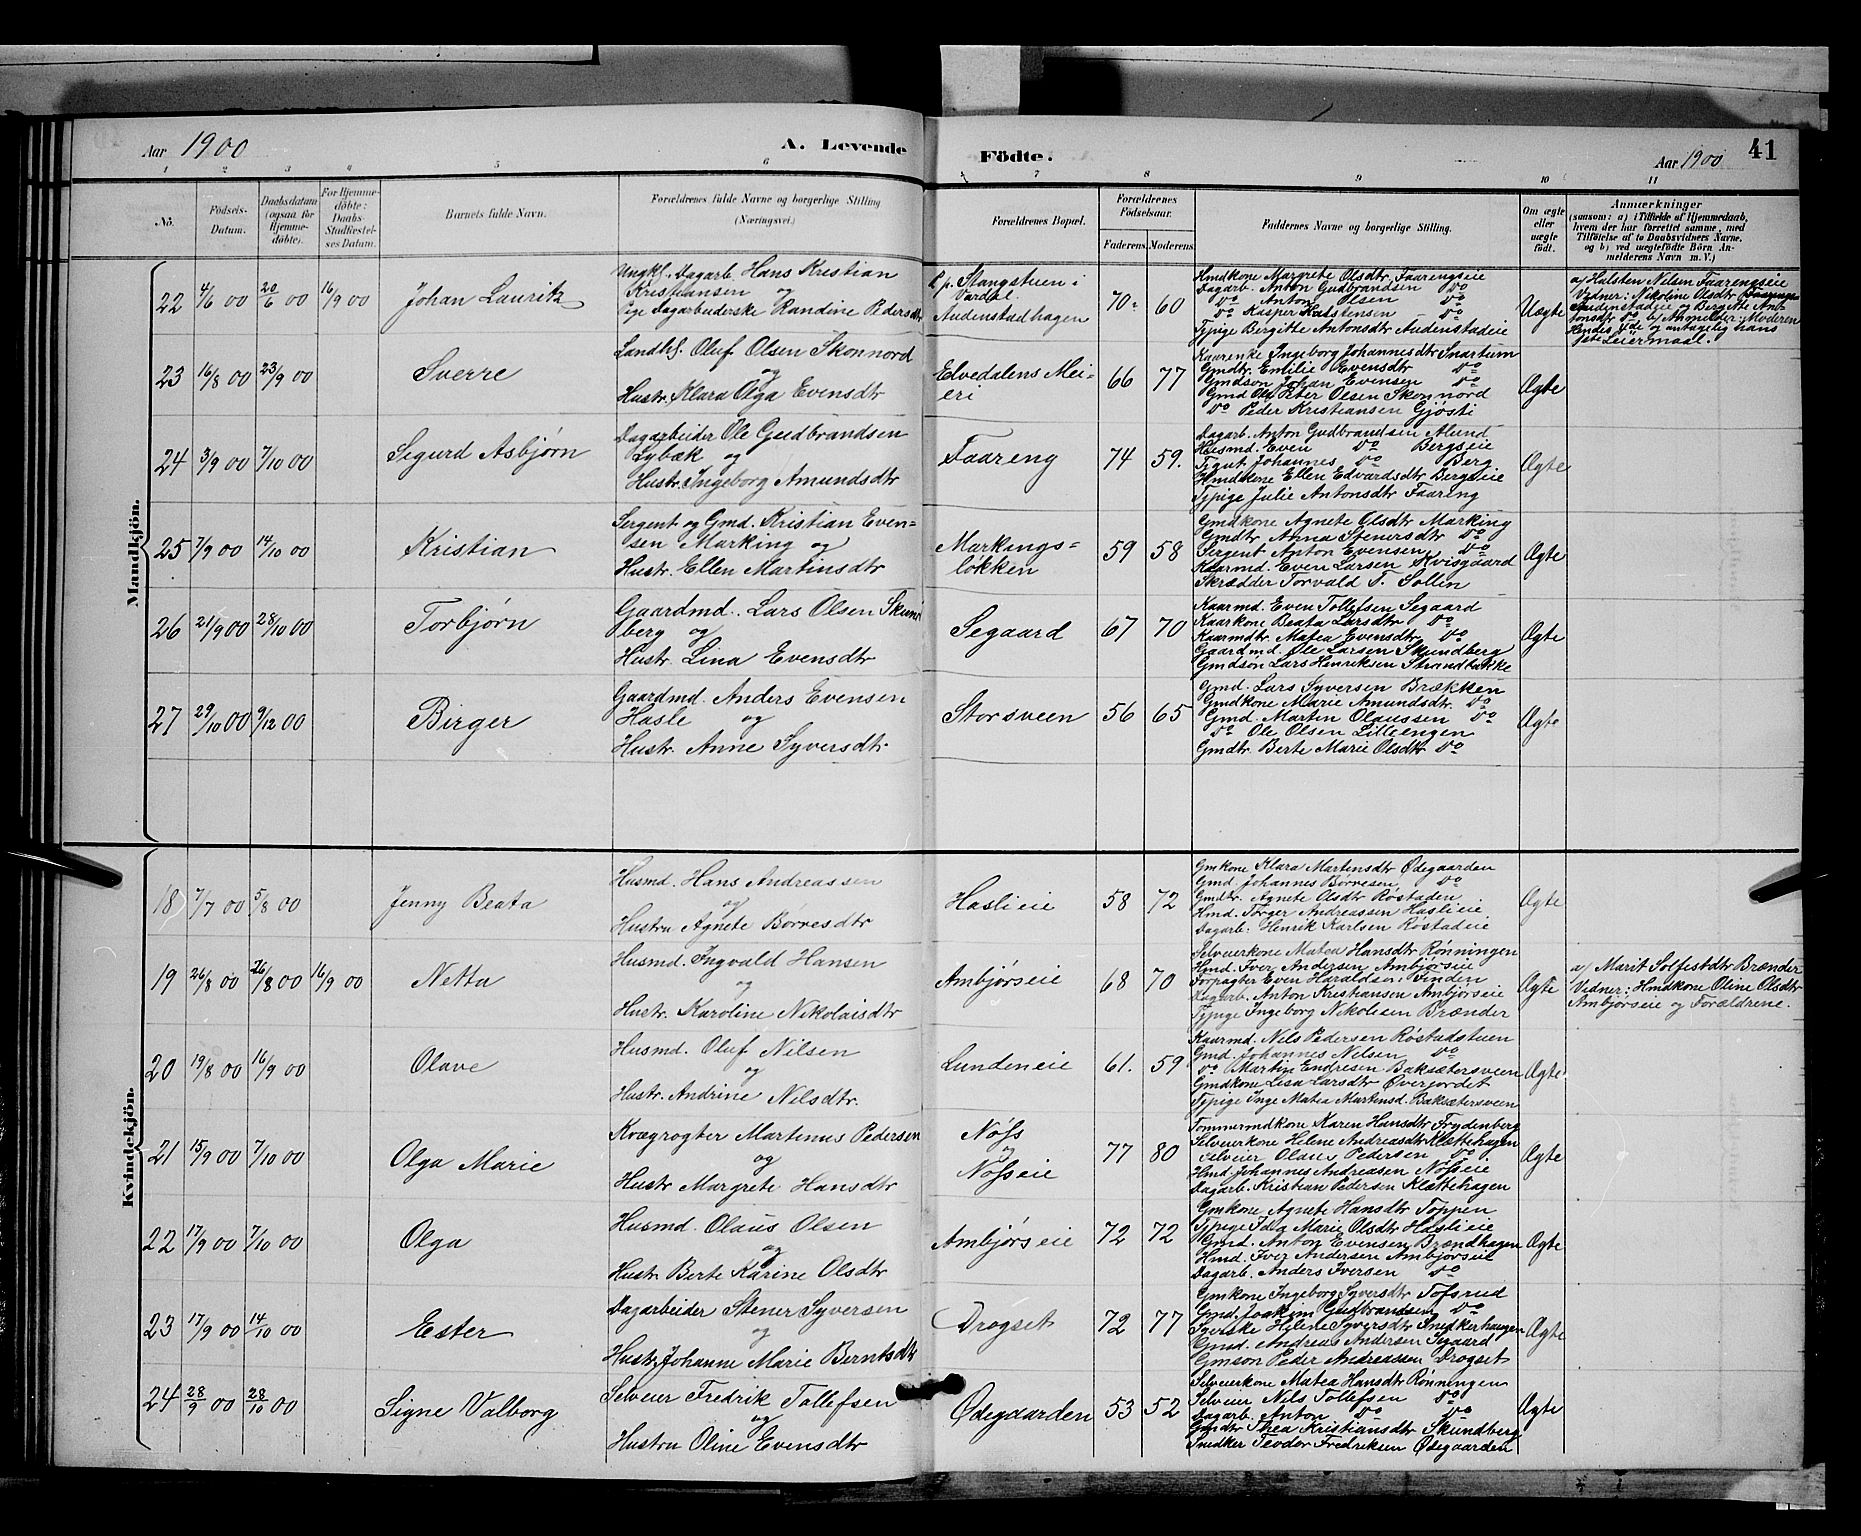 Aar 1900 A. Levende Födte. Aar 1900 41
1 2 3 4 5 6 7 8 9 10 11
No. Födsels-Datum. Daabsdatum (ogsaa for Hjemme-döbte). For Hjemme-döbte: Daabs-Stadfæstel-ses Datum. Barnets fulde Navn. Forældrenes fulde Navne og borgerlige Stilling (Næringsvei.) Forældrenes Bopæl. Forældrenes Födselsaar. Faderens. Moderens. Faddernes Navne og borgerlige Stilling. Om ægte eller uægte födt. Anmærkninger
(saasom: a) i Tilfælde af Hjemmedaab,
hvem der har forrettet samme, med
Tilföielse af to Daabsvidners Navne,
og b) ved uægtefödte Börn An-
melderens Navn m. V.)
Mandkjön.
22 4/6 00 20/6 00 16/9 00 Johan Lauritz
Ungkl. Dagarb. Hans Kristian
Kristiansen og
Pige Dagarbeiderske Randine Pedersdtr
Stangstuen i
Vardal
Audenstadhagen
70 60
Hmdkone Margrete Olsdtr Faarengseie
Dagarb. Anton Gudbrandsen Do
Do Anton Olsen Do
Do Kasper Halstensen Do
Tjpige Bergitte Antonsdtr Audenstadeie
Uægte
a/ Halsten Nilsen Faarengseie
Vidner: Nikoline Olsdtr
Audenstadeie og Bergitte Ant-
onsdtr Do b/ Anmelder: Moderen
Hendes 4de og antagelig hans
1ste Leiermaal.
23 16/8 00 23/9 00 Sverre
Landhl. Oluf Olsen Skonnord
og
Hustr. Klara Olga Evensdtr
Edvedalens Mei-
eri
66 77
Kaarenke Ingeborg Johannesdtr Snartum
Gmdtr. Emilie Evensdtr Do
Gmdson Johan Evensen Do
Gmd Ole Peter Olsen Skonnord
Do Peder Kristiansen Gjösti
Ægte
24 3/9 00 7/10 00 Sigurd Asbjørn
Dagarbeider Ole Gudbrandsen
Lybæk og
Hustr. Ingeborg Amundsdtr
Faareng
74 59.
Dagarb. Anton Gudbrandsen Mund
Husmd. Even Do Bergseie
Tjgut Johannes Do Berg
Hmdkone Ellen Edvardsdtr Bergseie
Tjpige Julie Antonsdtr Faaring
Ægte
25 7/9 00 14/10 00 Kristian
Sergent og Gmd. Kristian Even-
sen Marking og
Hustr. Ellen Martinsdtr
Markings-
løkken
59 58
Gmdkone Agnete Olsdtr Marking
Gmdtr. Anna Stenersdtr Do
Sergent Anton Evensen Do
Kaarmd. Even Larsen Kvisgaard
Skrædder Torvald T. Sollin
Ægte
26 21/9 00 28/10 00 Torbjørn
Gaardmd. Lars Olsen Skund
berg og
Hustr. Lina Evensdtr
Segaard
67 70
Kaarmd. Even Tollefsen Segaard
Kaarkone Beata Larsdtr Do
Kaarmdtr. Matea Evensdtr Do
Gaardmd. Ole Larsen Skundberg
Gmdson Lars Henriksen Strandbakke
Ægte
27 29/10 00 9/12 00 Birger
Gaardmd. Anders Evensen
Hasle og
Hustr. Anne Syversdtr
Storsveen
56 65
Gmd. Lars Syversen Brækken
Gmdkone Marie Amundsdtr. Do
Gmd. Martin Olaussen Do
Do Ole Olsen Lilleengen
Gmdtr. Berte Marie Olsdtr Do
Ægte
Kvindekjön.
18 7/7 00 5/8 00 Jenny Beata
Husmd. Hans Andreassen
og
Hustru Agnete Børresdtr
Haslieie
58 72
Gmkone Klara Martinsdtr Ødegaarden
Gmd. Johannes Børresen Do
Gmdtr. Agnete Olsdtr Røstaden
Hmd. Torger Andreassen Haslieie
Dagarb. Henrik Karlsen Røstadeie
Ægte
19 26/8 00 26/8 00 16/9 00 Netta
Husmd. Ingvald Hansen
og
Hustr. Karoline Nikolaisdtr
Ambjørseie
68 70
Selveierkone Matea Hansdtr Rønningen
Hmd. Iver Andersen Ambjørseie
Forpagter Even Haraldsen Linden
Dagarb. Anton Kristiansen Ambjørseie
Tjpige Ingeborg Nikolisen Brænder
Ægte
a/ Marit Solfestdtr Brænder
Vidner: Hmdkone Oline Olsdtr
Ambjørseie og Forældrene.
20 19/8 00 16/9 00 Olave
Husmd. Oluf Nilsen
og
Hustr. Andrine Nilsdtr.
Lundeneie
61. 59
Kaarmd. Nils Pedersen Røstadstuen
Gmd. Johannes Nilsen Do
Do Martin Endresen Baksætersveen
Gmdkone Lisa Larsdtr Øverjordet
Tjpige Inge Matea Martinsd. Baksætersveen
Ægte
21 15/9 00 7/10 00 Olga Marie
Kvægrøgter Martenus Pedersen
og
Hustr Margrete Hansdtr
Nøss
og
Nøsseie
77 80
Tømmermdkone Karen Hansdtr Frydenberg
Selveierkone Helene Andreasdtr Klættehagen
Selveier Olaus Pedersen Do
Hmd. Johannes Andreasen Nøsseie
Dagarb. Kristian Pedersen Klættehagen
Ægte
22 17/9 00 7/10 00 Olga
Husmd. Olaus Olsen
og
Hustr. Berte Karine Olsdtr
Ambjørseie
72 72
Gmkone Agnete Hansdtr Toppen
Tjpige Ida Marie Olsdtr Haslieie
Gmd. Anton Evensen Brændhagen
Hmd. Iver Andersen Ambjørseie
Dagarb. Anders Iversen Do
Ægte
23 17/9 00 14/10 00 Ester
Dagarbeider Stener Syversen
og
Hustr. Johanne Marie Berntsdtr
Drogset
72 77
Gmkone Ingeborg Syversdtr Tofsrud
Gmd. Joakim Gudbrandsen Do
Syerske Helene Syversdtr Snedkerhaugen
Gmd. Andreas Andersen Sygaard
Gmson Peder Andreassen Drogset
Ægte
24 28/9 00 28/10 00 Signe Valborg
Selveier Fredrik Tollefsen
og
Hustru Oline Evensdtr
Ødegaarden
53 52
Selveierkone Matea Hansdtr Rønningen
Selveier Nils Tollefsen Do
Dagarb. Anton Do Do
Gmdtr Thea Kristiansdtr Skundberg
Snedker Teodor Fredriksen Ødegaarden
Ægte